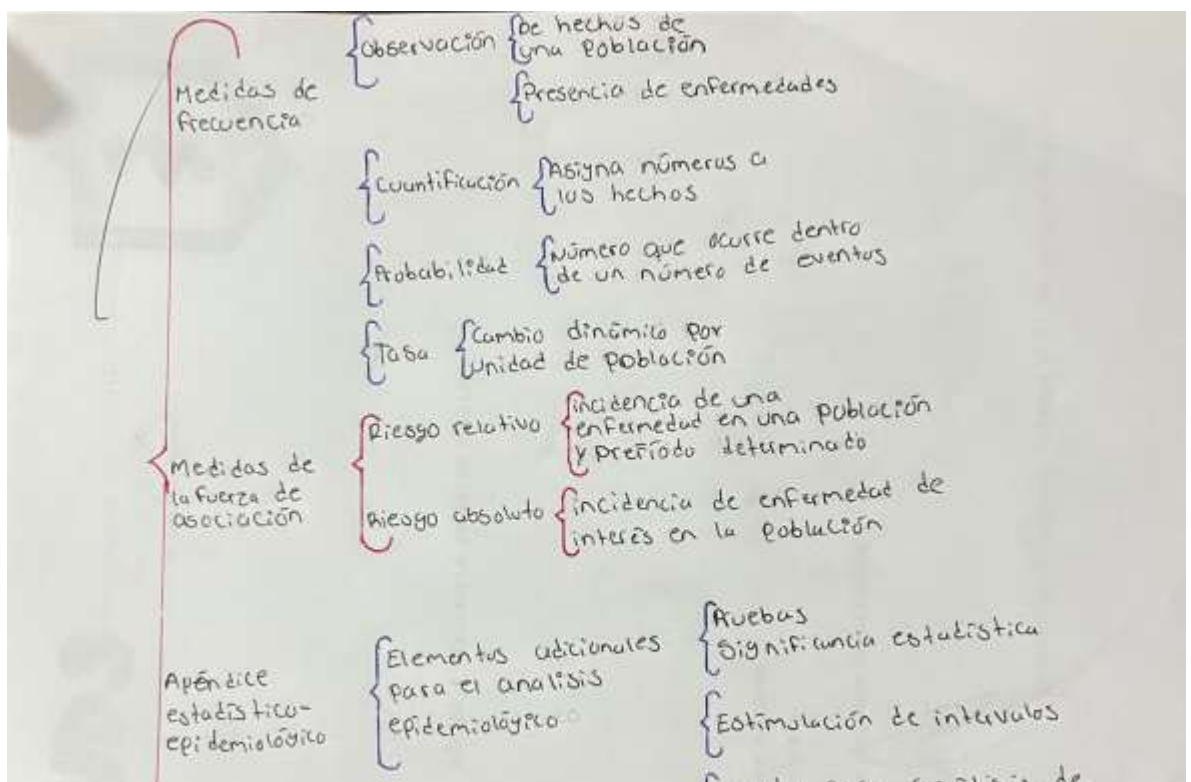 Medidas de
frecuencia
Observación
De hechos de
una población
Presencia de enfermedades
Cuantificación
Asigna números a
los hechos
Probabilidad
Número que ocurre dentro
de un número de eventos
Tasa
Cambio dinámico por
Unidad de población
Medidas de
la fuerza de
asociación
Riesgo relativo
incidencia de una
enfermedad en una población
y preríodo determinado
Riesgo absoluto
incidencia de enfermedad de
interés en la población
Apéndice
estadístico-
epidemiológico
Elementos adicionales
para el analisis
epidemiológico
Pruebas
Significancia estadística
Estimulación de intervalos